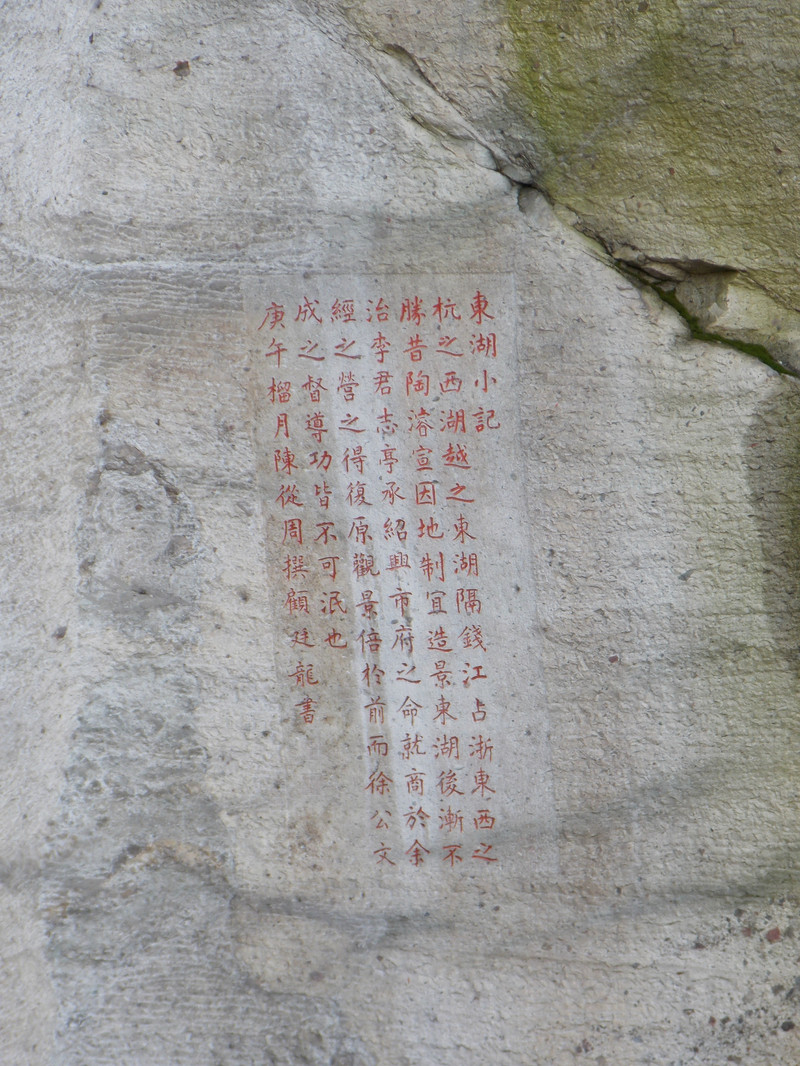 東湖小記
杭之西湖越之東湖隔錢江占浙東西之
勝昔陶濬宣因地制宜造景東湖後漸不
治李君志亭承紹興市府之命就商於余
經之營之得復原觀景倍於前而徐公文
成之督導功皆不可泯也
庚午榴月陳從周撰顧廷龍書